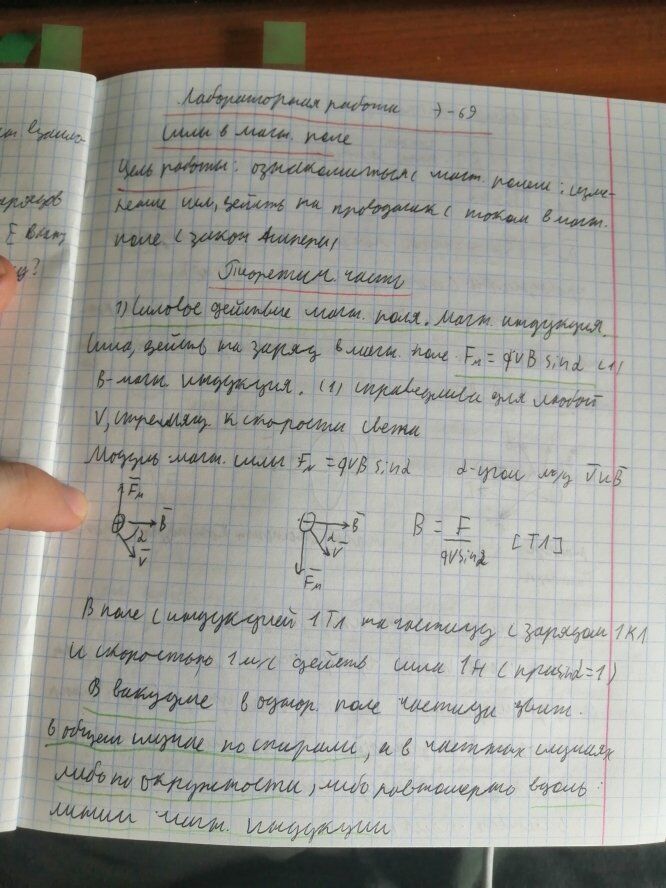 Лабораторная работа Э-69
Силы в магн. поле
Цель работы: ознакомиться с магн. полем; изме-
рение сил, действ на проводник с током в магн.
поле (закон Ампера)
Теоретич. часть
1) Силовое действие магн. поля. Магн. индукция.
Сила, действ на заряд в магн. поле Fм = qvB sinα (1)
B - магн. индукция. (1) справедлива для любой
V, стремящ. к скорости света
Модуль магн. силы Fм = qvB sinα α - угол м/у V̄ и B̄
F̄м B̄ α V̄
B̄ α V̄ F̄м
B = F / qvsinα [Тл]
В поле с индукцией 1 Тл на частицу с зарядом 1 Кл
и скоростью 1 м/с действ сила 1Н (при sinα=1)
В вакууме в однор. поле частицы движ.
в общем случае по спирали, а в частных случаях
либо по окружности, либо равномерно вдоль
линии магн. индукции
взаимо-
зарядов